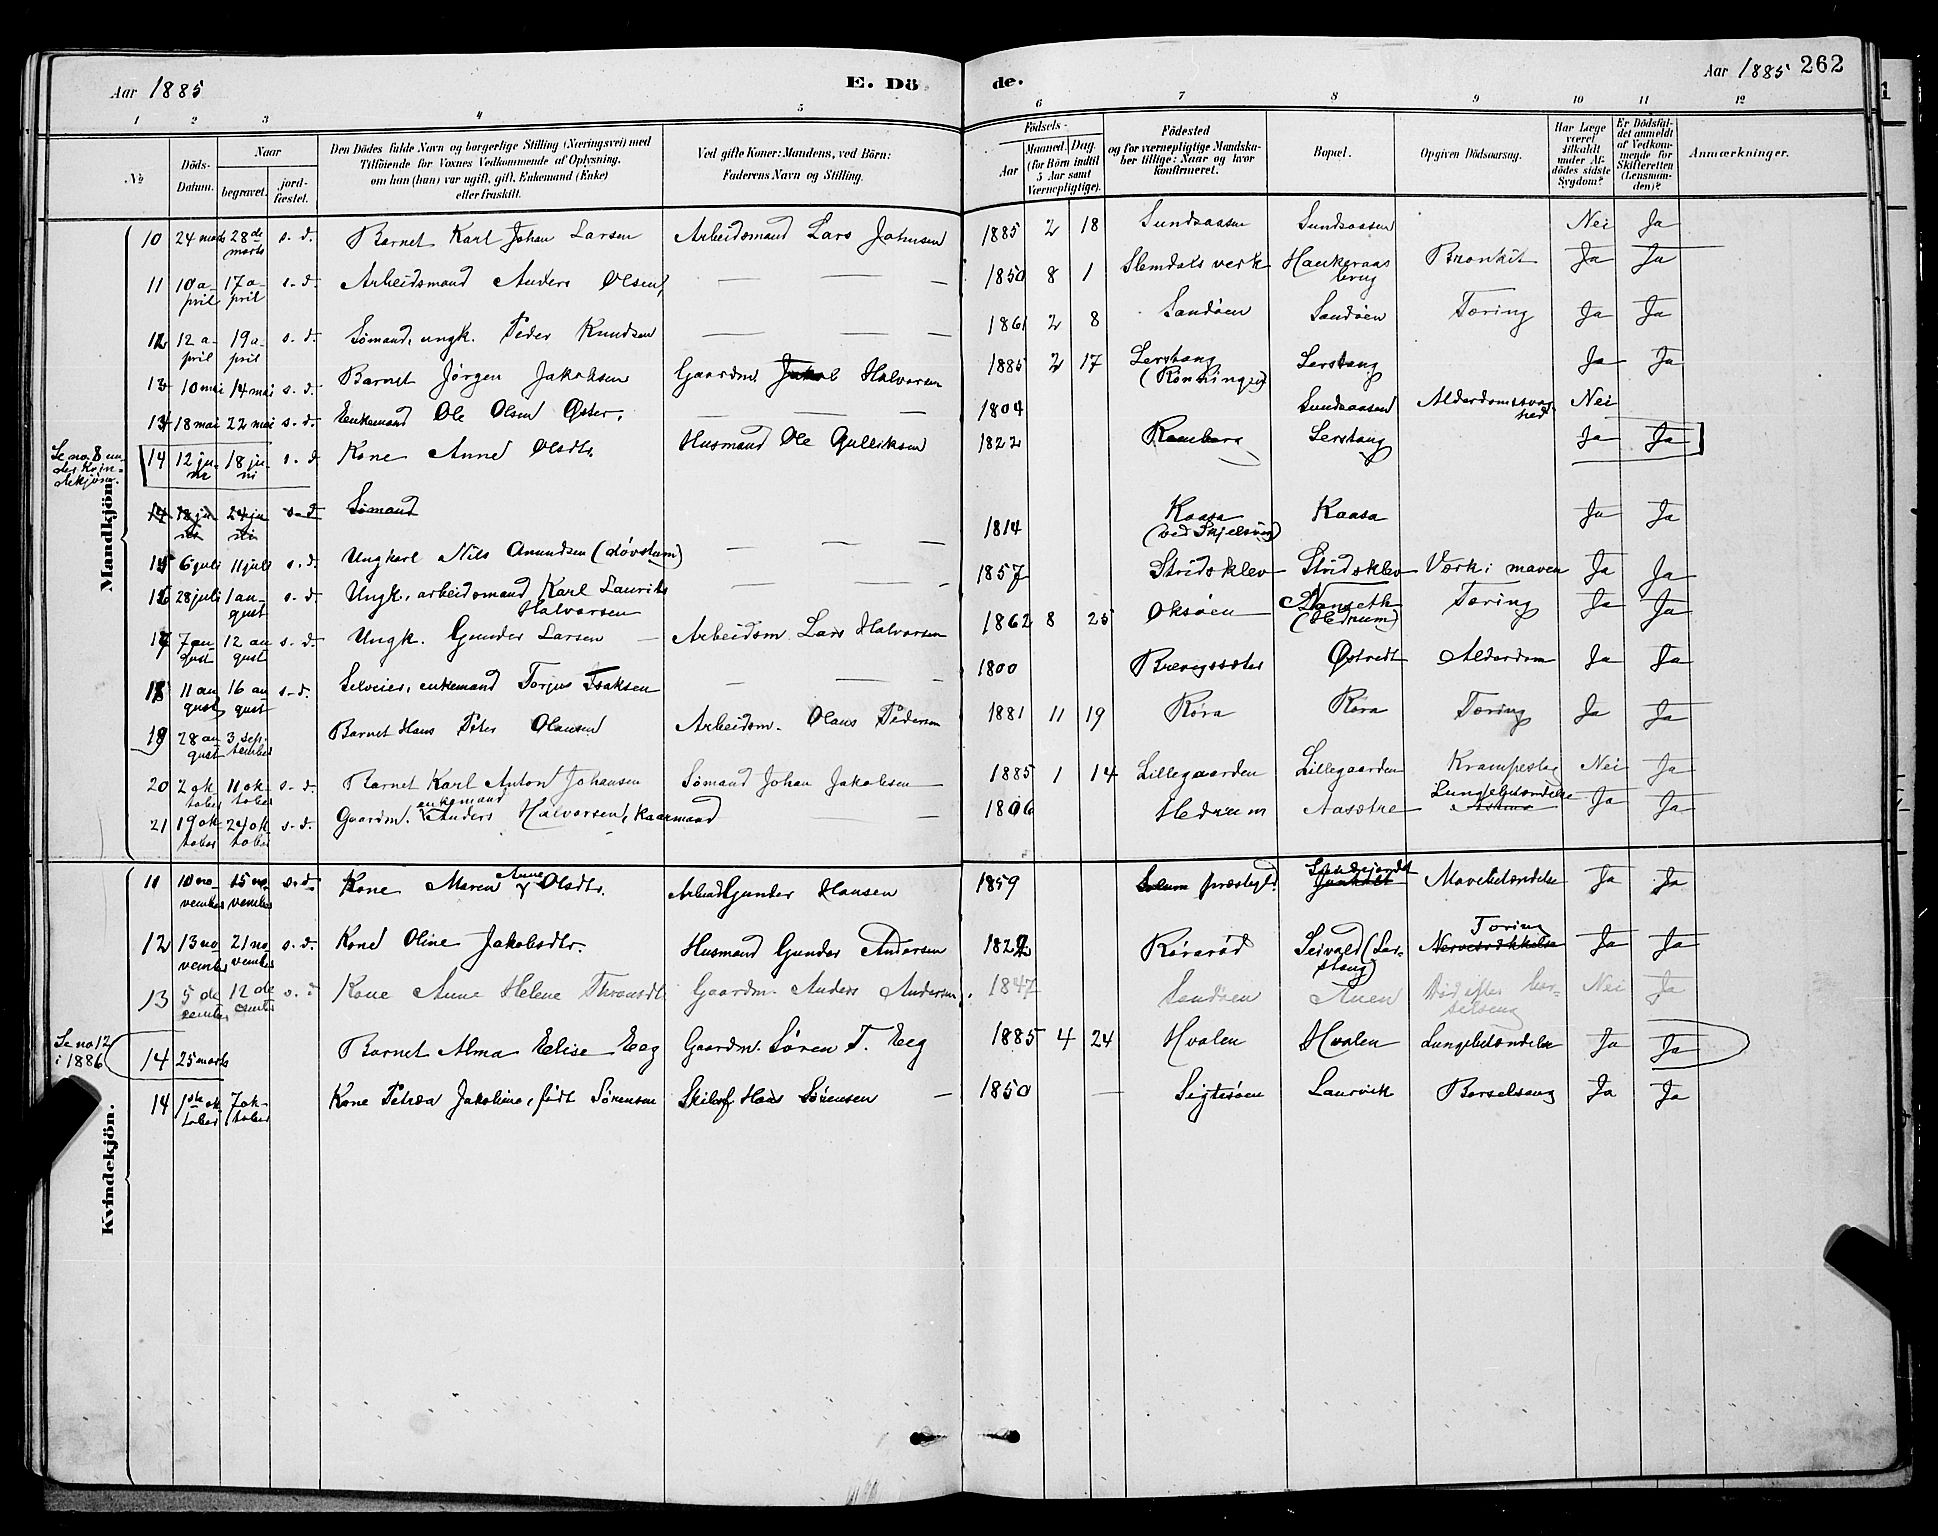 Aar 1885 E. Dö
de. Aar 1885 262
1 2 3 4 5
6 7 8 9 10 11 12
No
Döds-Datum.
Naar
begravet.
jordfæstet.
Den Dödes fulde Navn og borgerlige Stilling (Næringsvei) med
Tilföiende for Voxnes Vedkommende af Oplysning,
om hun (han) var ugift, gift, Enkemand (Enke)
eller fraskilt.
Ved gifte Koner: Mandens, ved Börn:
Faderens Navn og Stilling.
Födsels-
Aar
Maaned. Dag.
(for Börn indtil
5 Aar samt
Værnepligtige).
Födested
og for værnepligtige Mandskaber tillige: Naar og hvor
konfirmeret.
Bopæl.
Opgiven Dödsaarsag.
Har Læge
været
tilkaldt
under Afdödes sidste
Sygdom?
Er Dödsfaldet anmeldt
af Vedkommende for
Skifteretten
(Lensmanden)?
Anmærkninger.
Mandkjön.
10 24 marts 28de marts s. d. Barnet Karl Johan Larsen Arbeidsmand Lars Johnsen 1885 2 18 Sundsaasen Sundsaasen Nei Ja
11 10 april 17 april s. d. Arbeidsmand Anders Olsen — — 1850 8 1 Slemdals verk Haukeraas brug Bronkit Ja Ja
12 12 april 19 april s. d. Sømand, ungk. Peder Knudsen — — — 1861 2 8 Sandøen Sandøen Tæring Ja Ja
13 10 mai 14 mai s. d. Barnet Jørgen Jakobsen Gaardm. Jakob Halvorsen 1885 2 17 Lerstang (Rønningen) Lerstang Ja Ja
13 18 mai 22 mai s. d. Enkemand Ole Olsen Øster. — — — 1804 Sundsaasen Alderdomssvaghed Nei
Se no. 8 under kvindekjøn.
14 12 juni 18 juni s. d Kone Anne Olsdtr. Husmand Ole Gulliksen 1822 Ramberg Lerstang Ja Ja
14 18 juni 24 juni s. d Sømand 1814 Kaasa (ved Skjelsvig) Kaasa Ja Ja
15 6 juli 11 juli s. d. Ungkarl Nils Amundsen (døvstum) — — — 1857 Stridsklev Stridsklev Værk i maven Ja Ja
16 28 juli 1 august s. d. Ungk. arbeidsmand Karl Laurits Halvorsen — — — 1862 8 25 Oksøen Nanseth (Hedrum) Tæring Ja Ja
17 7 august 12 august s. d. Ungk. Gunder Larsen — Arbeidsm. Lars Halvorsen 1800 Brevigssæter Østvedt Alderdom Ja Ja
18 11 august 16 august s. d. Selveier, enkemand Torjus Isaksen — — — 1881 11 19 Røra Røra Tæring Ja Ja
19 28 august 3 september Barnet Hans Peter Olausen Arbeidsm. Olaus Pedersen
20 2 oktober 11 oktober s. d. Barnet Karl Anton Johansen Sømand Johan Jakobsen 1885 1 14 Lillegaarden Lillegaarden Krampeslag Nei Ja
21 19 oktober 24 oktober s. d. Gaardm. enkemand Anders Halvorsen, Kaarmand — 1806 Hedrum Aasstre Lungebetændelse Astma Ja Ja
Kvindekjön.
11 10 november 15 november s. d. Kone Maren Anne Olsdtr. Arbeid Gunder Hansen 1859 Solum præstegl. Sandejordet Mavebetændelse Ja Ja
12 13 november 21 november s. d. Kone Oline Jakobsdtr. Husmand Gunder Andersen 1822 Rørarød Seivald (Lerstang) Tæring Nervesvækkelse Ja Ja
13 5 december 12 december s. d Kone Anne Helene Thronsdt. Gaardm. Anders Andersen. 1847 Sandøen Auen Død efter barselseng Nei Ja
Se no 12 i 1886
14 25 marts Barnet Alma Elise Eeg Gaardm. Søren T. Eeg 1885 4 24 Hvalen Hvalen Lungebetændelse Ja Ja
14 1ste oktober 7 oktober Kone Petrea Jakobine, født Sørensen Skibsf Hans Sørensen — 1850 — Sigtesøen Laurvik Barselseng Ja Ja